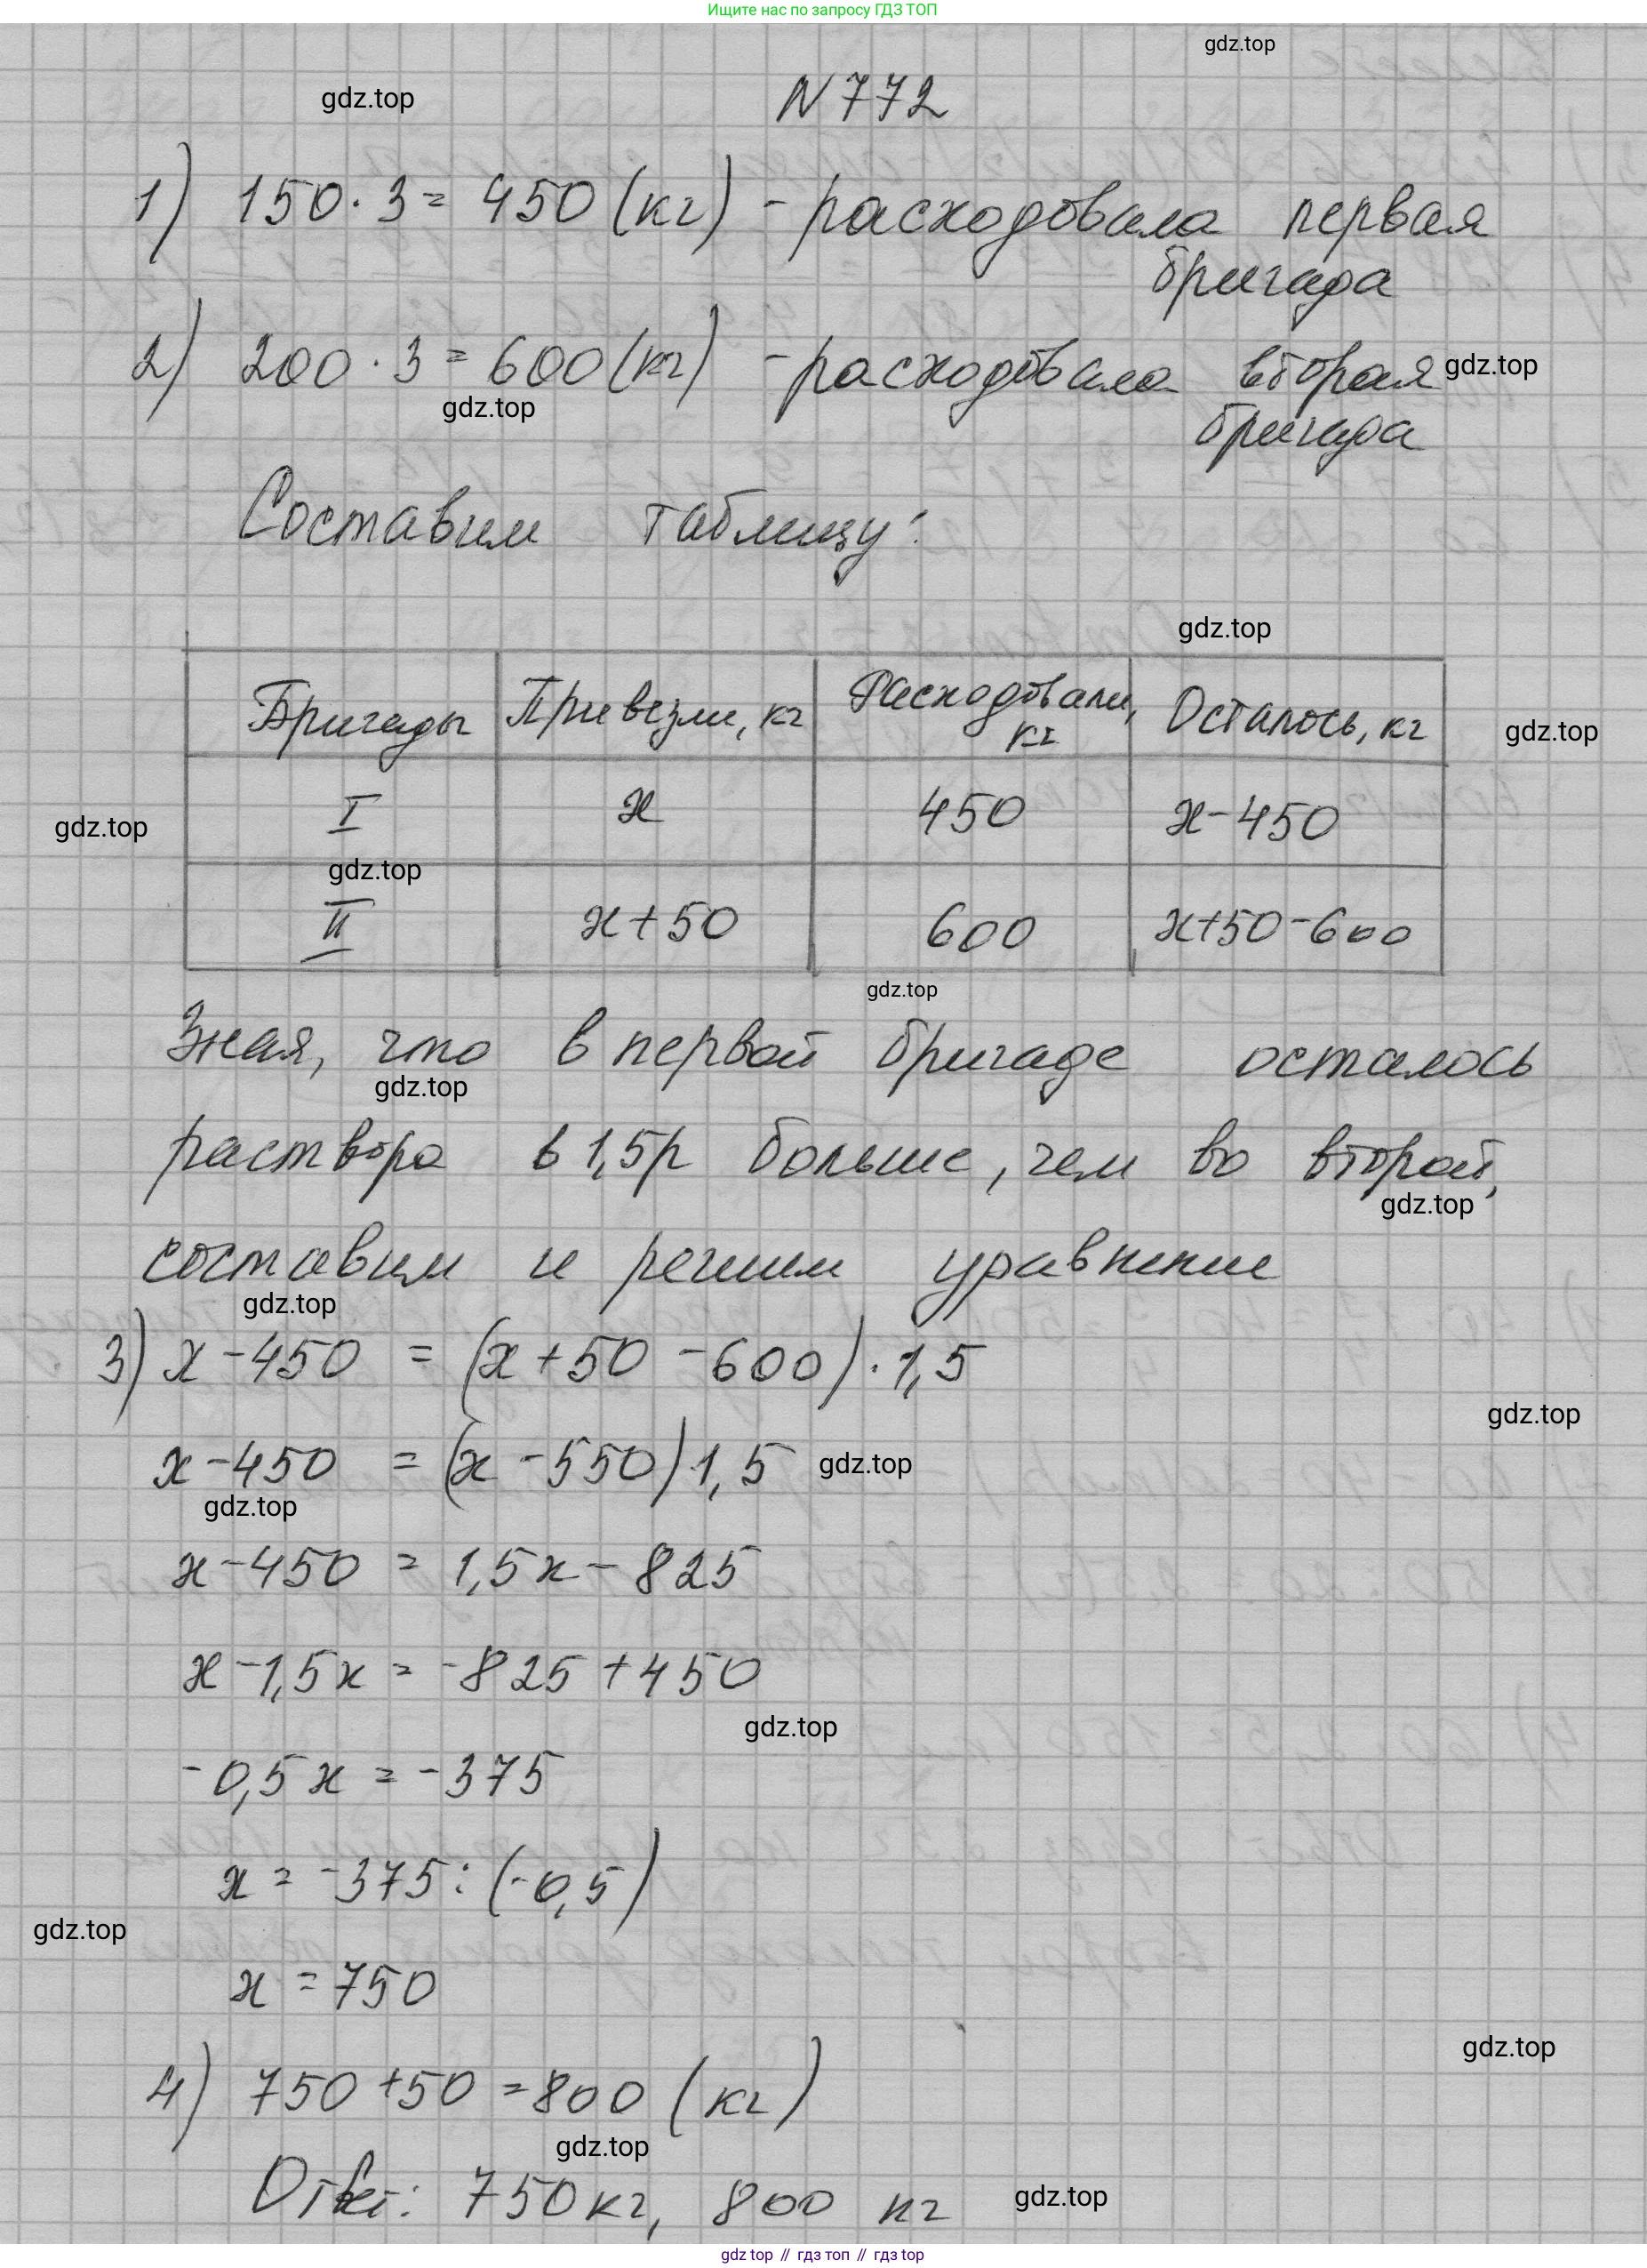 Ищите нас по запросу ГДЗ ТОП
gdz.top
gdz.top
N 772
1) 150 · 3 = 450 (кг) - расходовала первая
бригада
2) 200 · 3 = 600 (кг) - расходовала вторая
gdz.top
gdz.top
бригада
Составим таблицу:
gdz.top
Бригады Привезли, кг Расходовали, кг Осталось, кг
gdz.top
I х 450 х-450
gdz.top
gdz.top
II х+50 600 х+50-600
gdz.top
Зная, что в первой бригаде осталось
gdz.top
раствора в 1,5р больше, чем во второй,
gdz.top
составим и решим уравнение
gdz.top
3) х-450 = (х+50-600)·1,5
gdz.top
х-450 = (х-550)1,5
gdz.top
gdz.top
х-450 = 1,5х-825
х-1,5х = -825+450
gdz.top
-0,5х = -375
х = -375:(-0,5)
gdz.top
х = 750
gdz.top
4) 750+50=800 (кг)
gdz.top
Ответ: 750кг, 800 кг
gdz.top
gdz top // гдз топ // гдз top